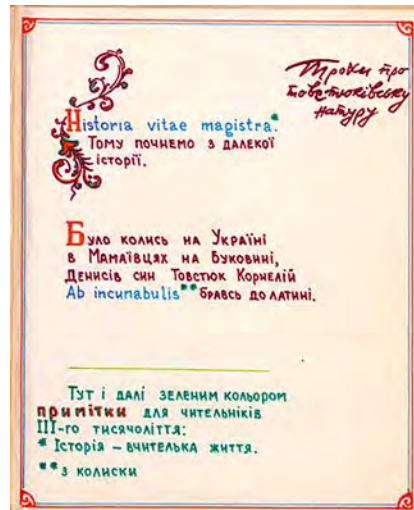 Трохи про
товстюківську
натуру
Historia vitae magistra.*
Тому почнемо з далекої
історії.
Було колись на Україні
в Мамаївцях на Буковині,
Денисів син Товстюк Корнелій
Ab incunabulis** бравсь до латині.
Тут і далі зеленим кольором
примітки для чительників
III-го тисячоліття:
* Історія – вчителька життя.
** з колиски